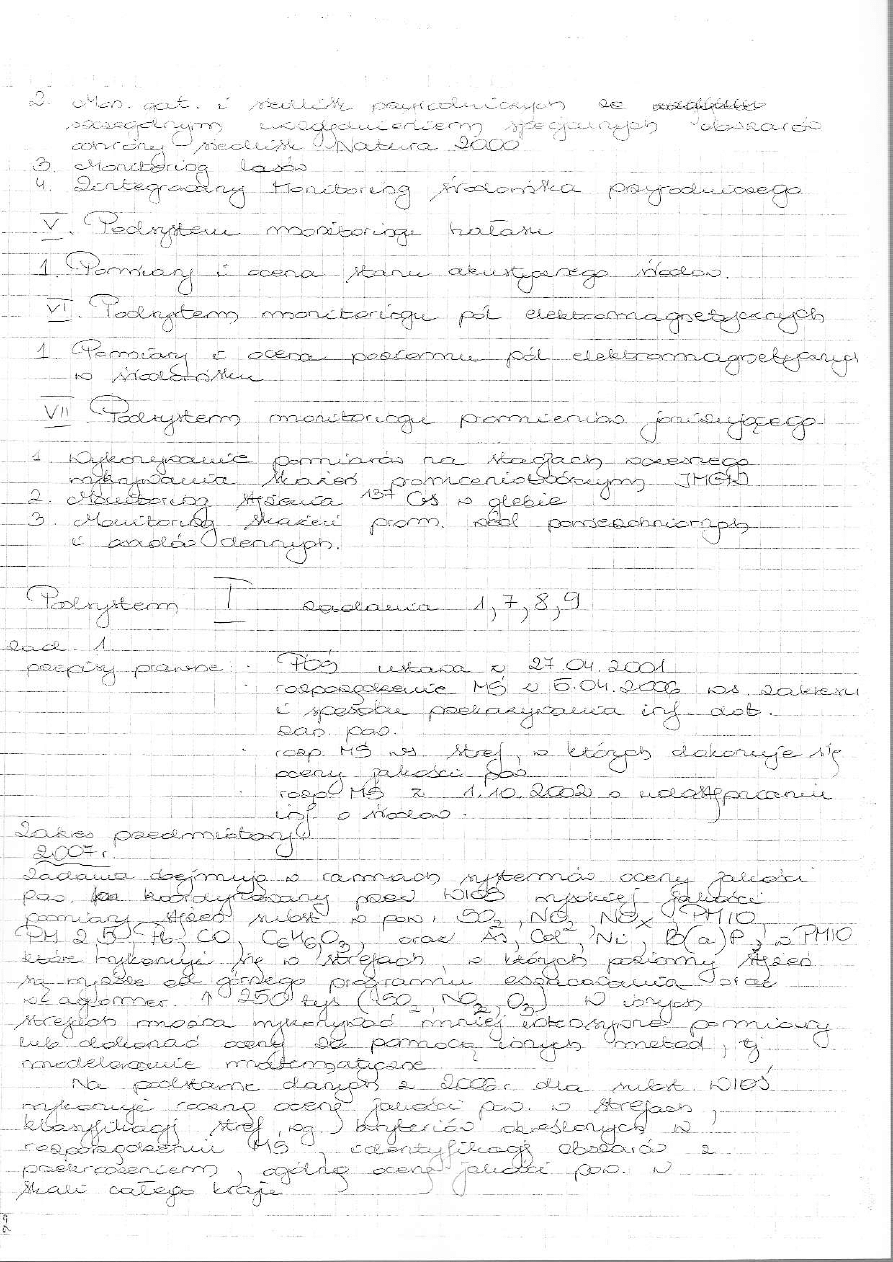 2. Mon. gat. i siedlisk przyrodniczych ze
szczególnym uwzględnieniem specjalnych obszarów
ochrony siedlisk Natura 2000
3. Monitoring lasów
4. Zintegrowany Monitoring środowiska przyrodniczego
V. Podsystem monitoringu hałasu
1. Pomiary i ocena stanu akustycznego środow.
VI. Podsystem monitoringu pól elektromagnetycznych
1. Pomiary i ocena poziomu pól elektromagnetycznych
w środowisku
VII Podsystem monitoringu promieniow. jonizującego
1 Wykonywanie pomiarów na stacjach wczesnego
wykrywania skażeń promieniotwórczych IMGW
2. Monitoring stężenia 137 Cs w glebie
3. Monitoring skażeń prom. wód powierzchniowych
i osadów dennych.
Podsystem I zadania 1, 7, 8, 9
zad 1
przepisy prawne · POŚ ustawa z 27.04.2001
· rozporządzenie MŚ z 6.04.2006 ws zakresu
i sposobu przekazywania inf. dot.
zan. pow.
· rozp. MŚ ws stref, w których dokonuje się
oceny jakości pow
· rozp. MŚ z 1.10.2002 o udostępnianiu
inf. o środow.
Zakres przedmiotowy
2007r.
Zadania obejmują w ramach systemów oceny jakości
pow. koordynowany przez WIOŚ wysokiej jakości
pomiary stężeń subst w pow. SO2, NO2, NOx PM10
PM 2,5, Pb, CO, C6H6 O3, oraz As, Cd, Ni, B(a)P, w PM10
które wykonuje się w strefach, w których poziomy stężeń
są wyższe od górnego progu oszacowania oraz
w aglomer. ↑ 250 tys (SO2, NO2, O3) W innych
strefach można wykonywać mniej intensywne pomiary
lub dokonać oceny za pomocą innych metod, tj
modelowanie matematyczne
Na podstawie danych z 2006r. dla subst. WIOŚ
wykonuje roczną ocenę jakości pow. w strefach,
klasyfikacji stref wg kryteriów określonych w
rozporządzeniu MŚ, identyfikacji obszarów z
przekroczeniem, ogólną ocenę jakości pow. w
skali całego kraju